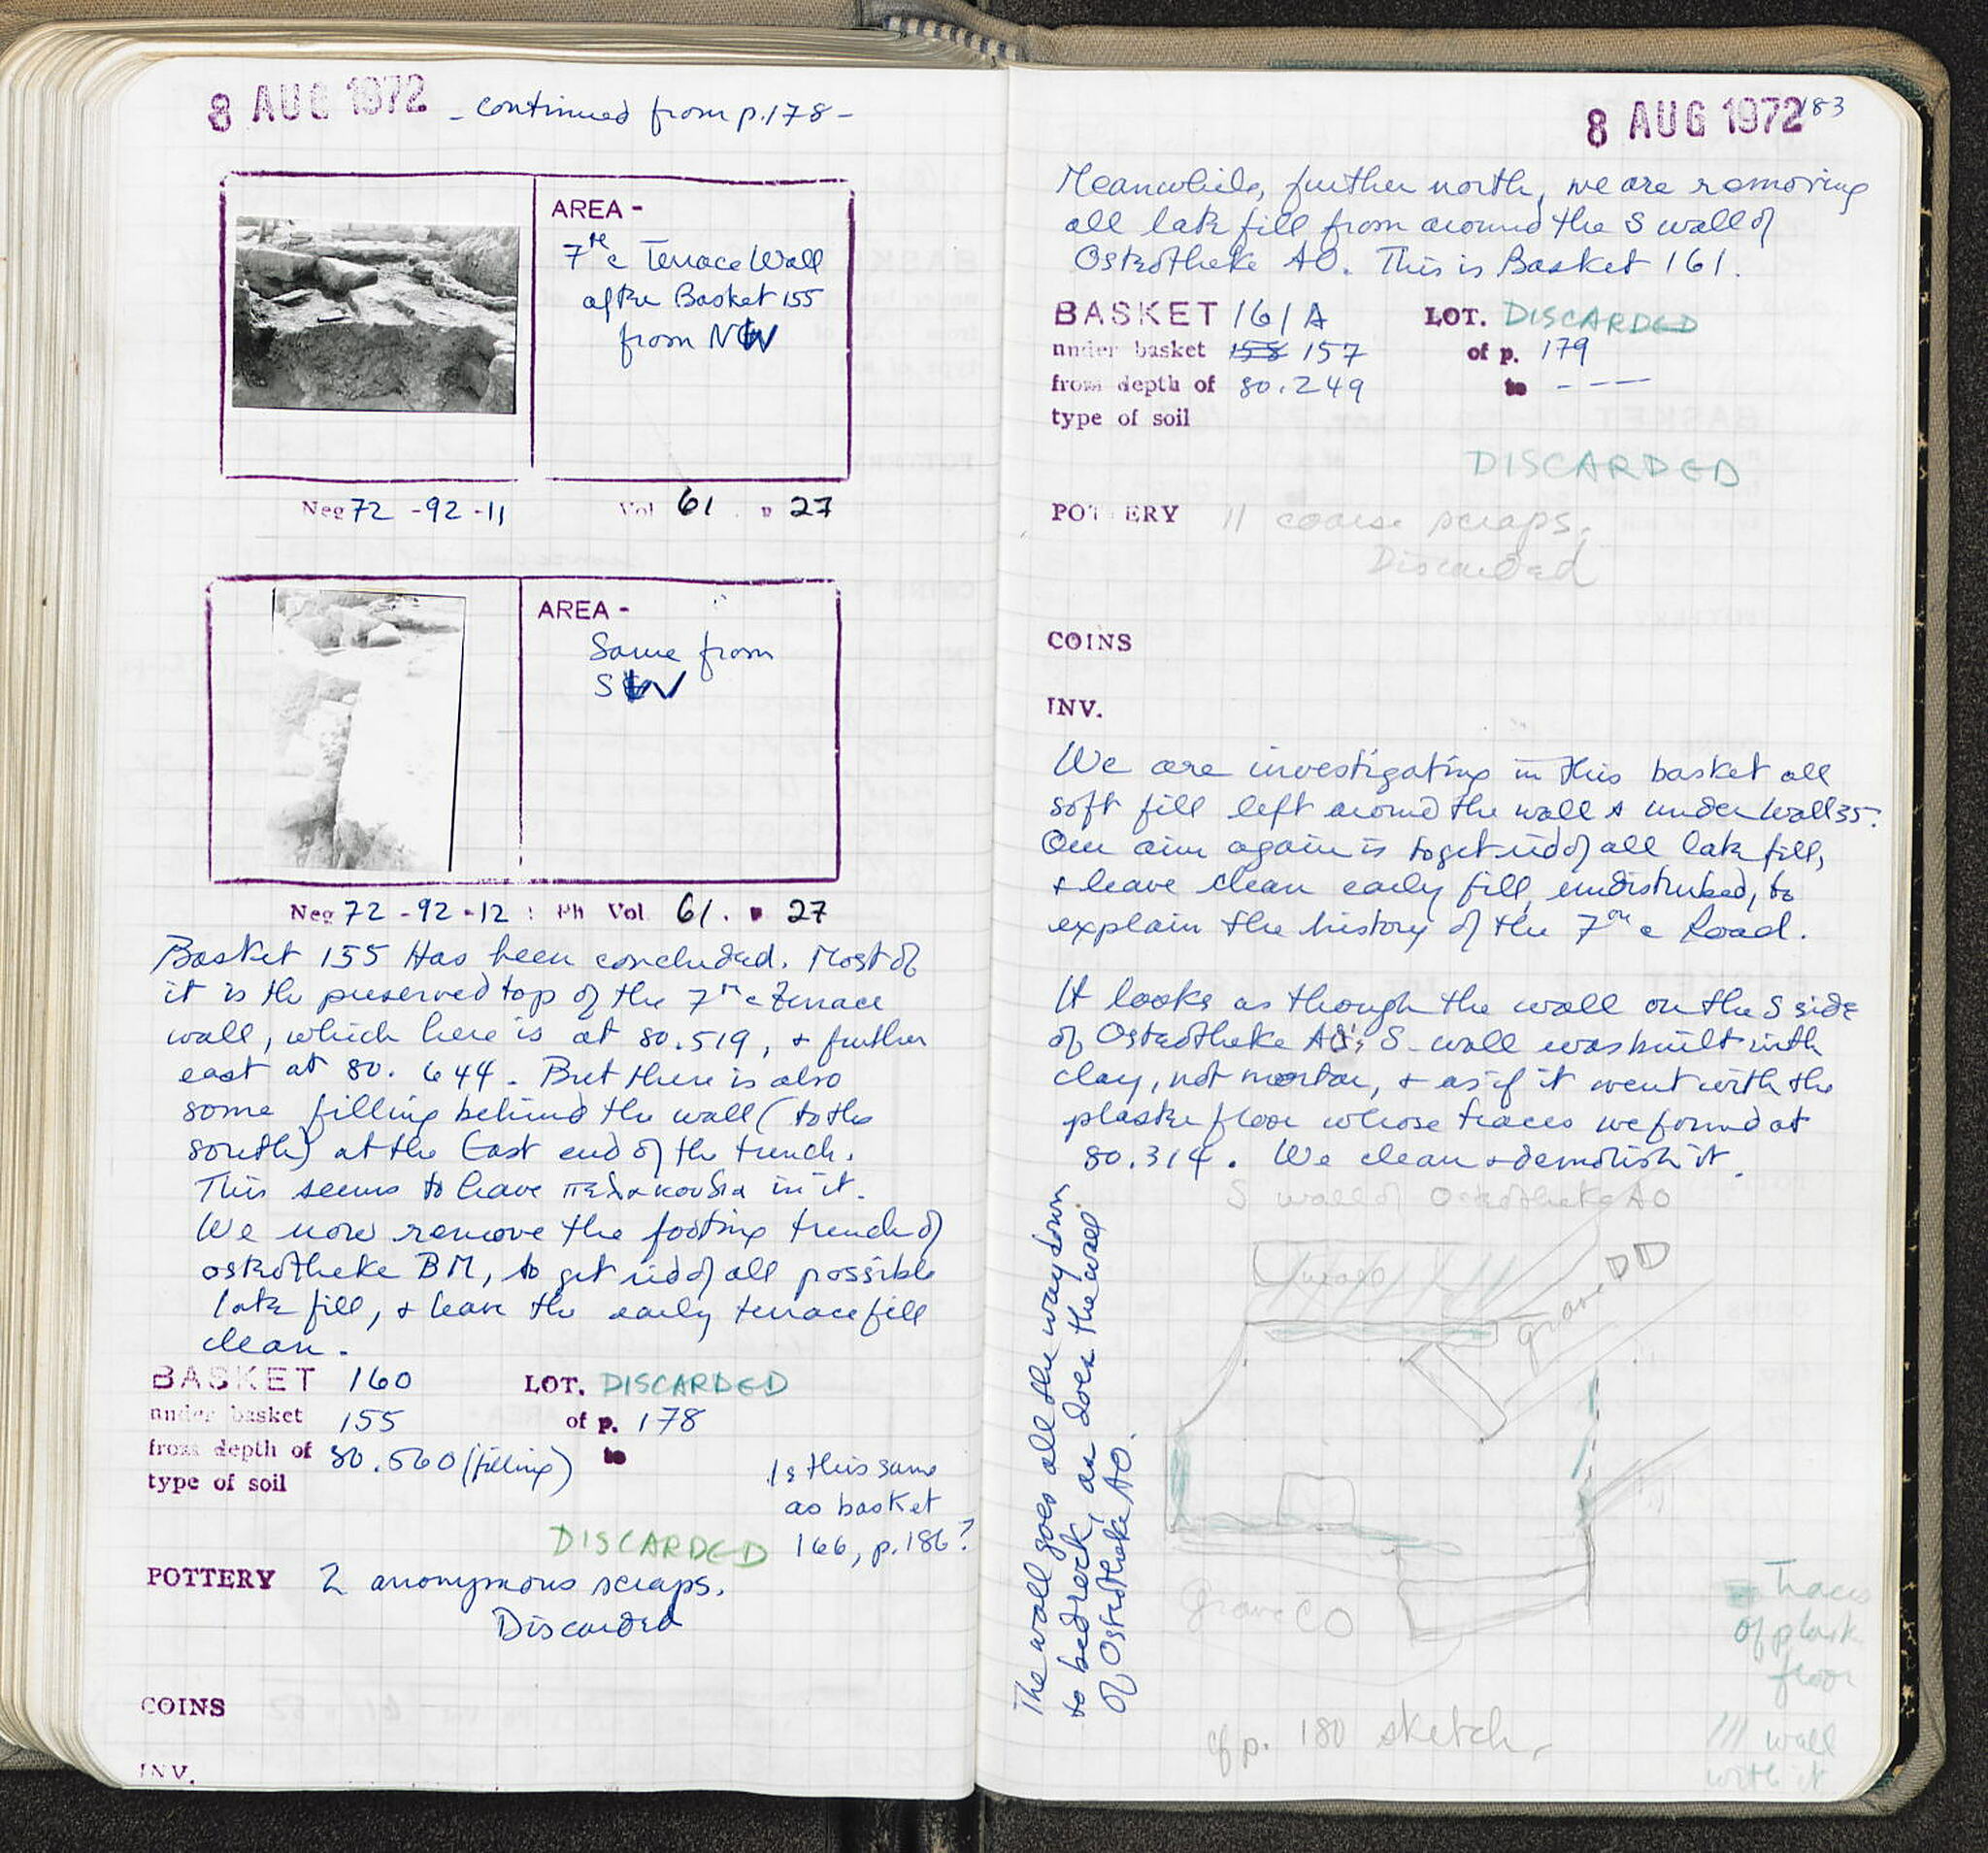 8 AUG 1972 - continued from p.178 -
AREA -
7th c Terrace Wall
after Basket 155
from NW
Neg 72 -92 -11 Vol 61 p 27
AREA -
Same from
SW
Neg 72 -92 -12 : Ph Vol 61. p 27
Basket 155 Has been concluded. Most of
it is the preserved top of the 7th c Terrace
wall, which here is at 80.519, + further
east at 80.644. But there is also
some filling behind the wall (to the
south) at the East end of the trench.
This seems to have πελακουδια in it.
We now remove the footing trench of
osteotheke BM, to get rid of all possible
late fill, + leave the early terrace fill
clean.
BASKET 160 LOT. DISCARDED
under basket 155 of p. 178
from depth of 80.560 (filling) to
type of soil
Is this same
as basket
166, p.186?
DISCARDED
POTTERY 2 anonymous scraps.
Discarded
COINS
INV.
8 AUG 1972 183
Meanwhile, further north, we are removing
all late fill from around the S wall of
Osteotheke AO. This is Basket 161.
BASKET 161A LOT. DISCARDED
under basket 158 157 of p. 179
from depth of 80.249 to - - -
type of soil
DISCARDED
POTTERY 11 coarse scraps.
Discarded
COINS
INV.
We are investigating in this basket all
soft fill left around the wall + under wall 35.
Our aim again is to get rid of all late fill,
+ leave clean early fill, undisturbed, to
explain the history of the 7th c Road.
It looks as though the wall on the S side
of Osteotheke AO's S. wall was built with
clay, not mortar, + as if it went with the
plaster floor whose traces we found at
80.314. We clean + demolish it.
The wall goes all the way down
to bedrock, as does the wall
of Osteotheke AO.
S wall of Osteotheke AO
grave DD
grave CO
Traces
of plaster
floor
/// wall
with it
cf p. 180 sketch.